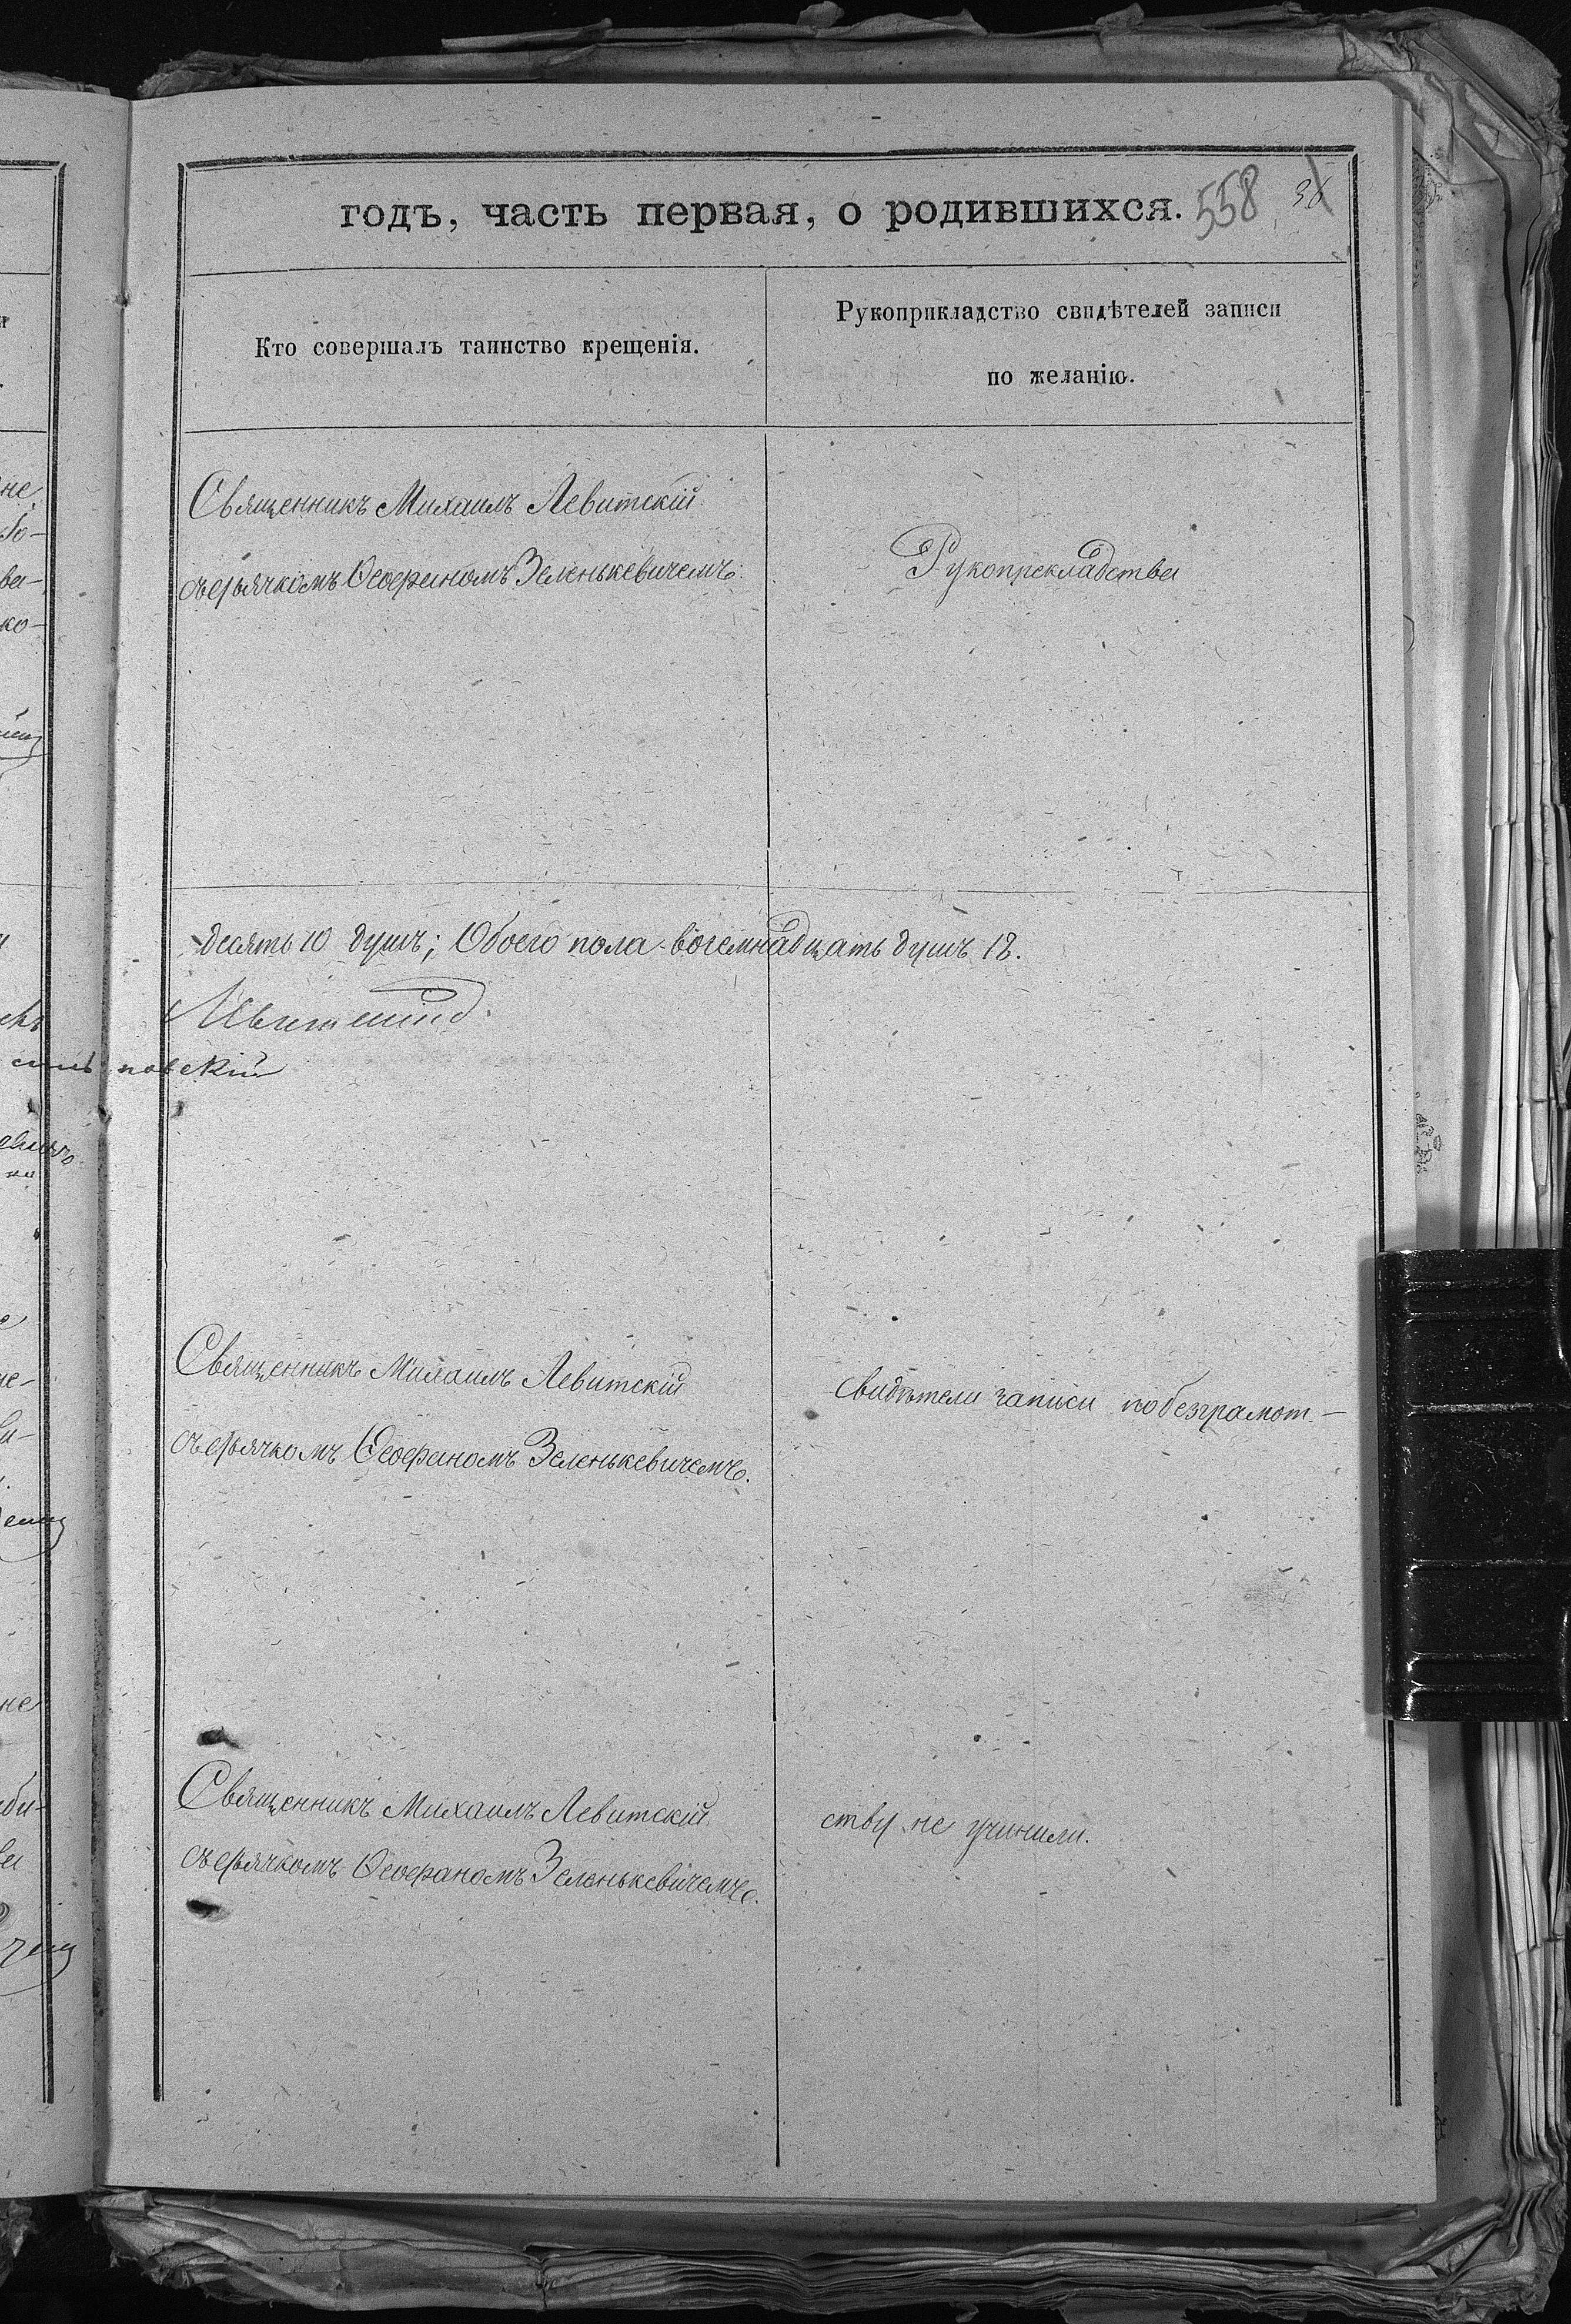 годъ, часть первая, о родившихся. 558
Кто совершалъ таинство крещенія.
Рукоприкладство свидѣтелей записи
по желанію.
Священникъ Михаилъ Левитскій
съ дьячкомъ Ѳеофаномъ Зеленькевичемъ.
Рукопрекладства
десять 10 душъ; Обоего пола восемнадцать душъ 18.
Левитскій
новскій
Священникъ Михаилъ Левитскій
съ дьячкомъ Ѳеофаномъ Зеленькевичемъ.
свидѣтели записи по безграмот-
Священникъ Михаилъ Левитскій
съ дьячкомъ Ѳеофаномъ Зеленькевичемъ.
ству не учинили.